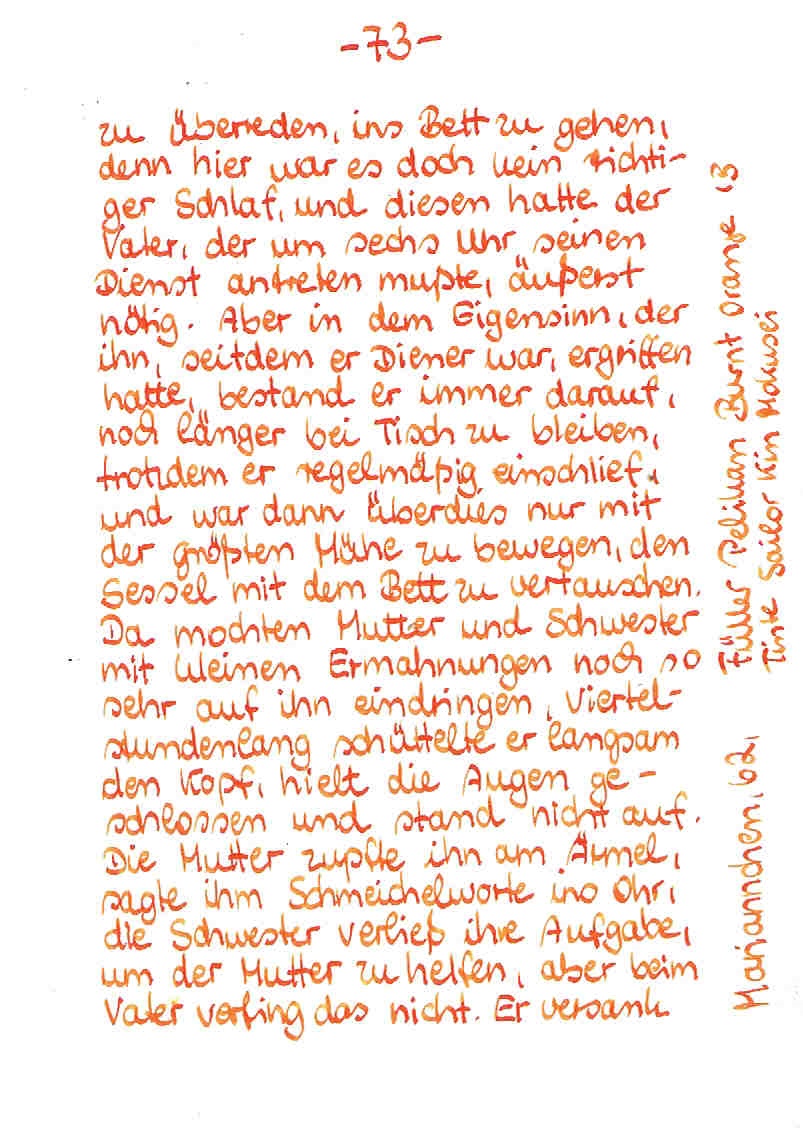 -73-
zu überreden, ins Bett zu gehen,
denn hier war es doch kein richti-
ger Schlaf, und diesen hatte der
Vater, der um sechs Uhr seinen
Dienst antreten mußte, äußerst
nötig. Aber in dem Eigensinn, der
ihn, seitdem er Diener war, ergriffen
hatte, bestand er immer darauf,
noch länger bei Tisch zu bleiben,
trotzdem er regelmäßig einschlief,
und war dann überdies nur mit
der größten Mühe zu bewegen, den
Sessel mit dem Bett zu vertauschen.
Da mochten Mutter und Schwester
mit kleinen Ermahnungen noch so
sehr auf ihn eindringen, viertel-
stundenlang schüttelte er langsam
den Kopf, hielt die Augen ge-
schlossen und stand nicht auf.
Die Mutter zupfte ihn am Ärmel,
sagte ihm Schmeichelworte ins Ohr,
die Schwester verließ ihre Aufgabe,
um der Mutter zu helfen, aber beim
Vater verfing das nicht. Er versank
Mariannchen, 62,
Füller Pelikan Burnt Orange 13
Tinte Sailor Kin Mokusei